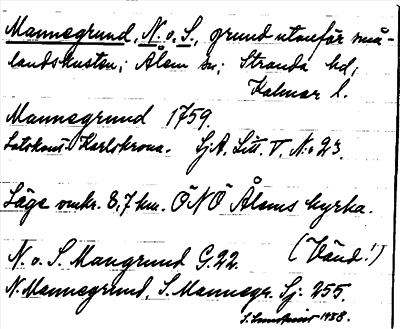 Mannegrund, N. o. S., grund utanför små-
landskusten; Ålem sn; Stranda hd;
Kalmar l.
Mannegrund 1759.
Karlskrona. SjA, Litt. V, No 23.
Läge omkr. 8,7 km. ÖNÖ Ålems kyrka.
N. o. S. Mangrund G. 22. (Vänd!)
N. Mannegrund, S. Mannegr. Sj. 255.
1938.